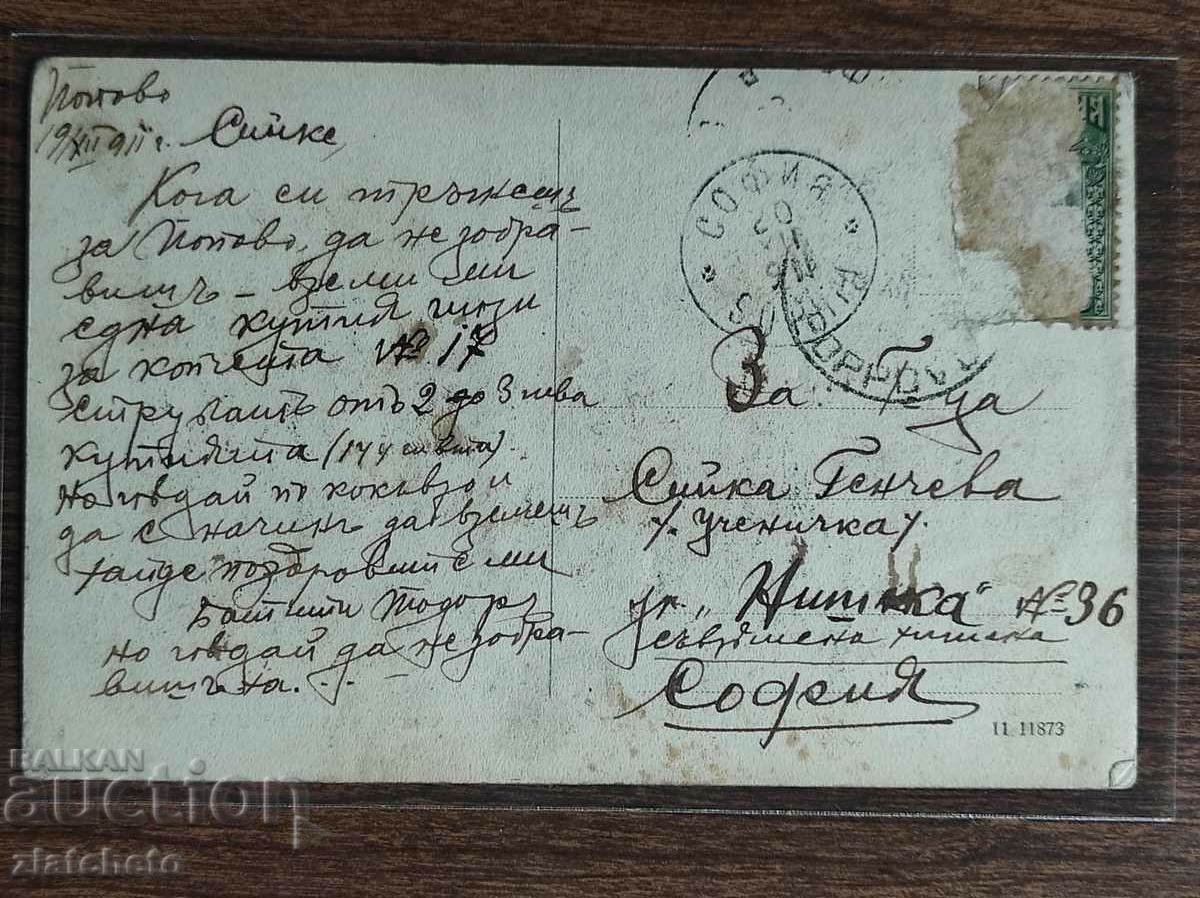 Попово
19/XII 911 г. Сийке,
Кога си тръжешъ
за Попово, да не зобра-
вишъ - вземи ми
една кутия
за копчета № 17
струватъ отъ 2 до 3 лева
кутията (144
Но гледай
да с начинъ да вземешъ
хайде поздровит с ми
Тодоръ
но гледай да не зобра-
вишъ на...
СОФИЯ
SOPHIA
За Г-ца
Сийка Генчева
/. Ученичка /.
ул. „ Нишка“ № 36
София
11. 11873
BALKAN
auction
zlatcheto